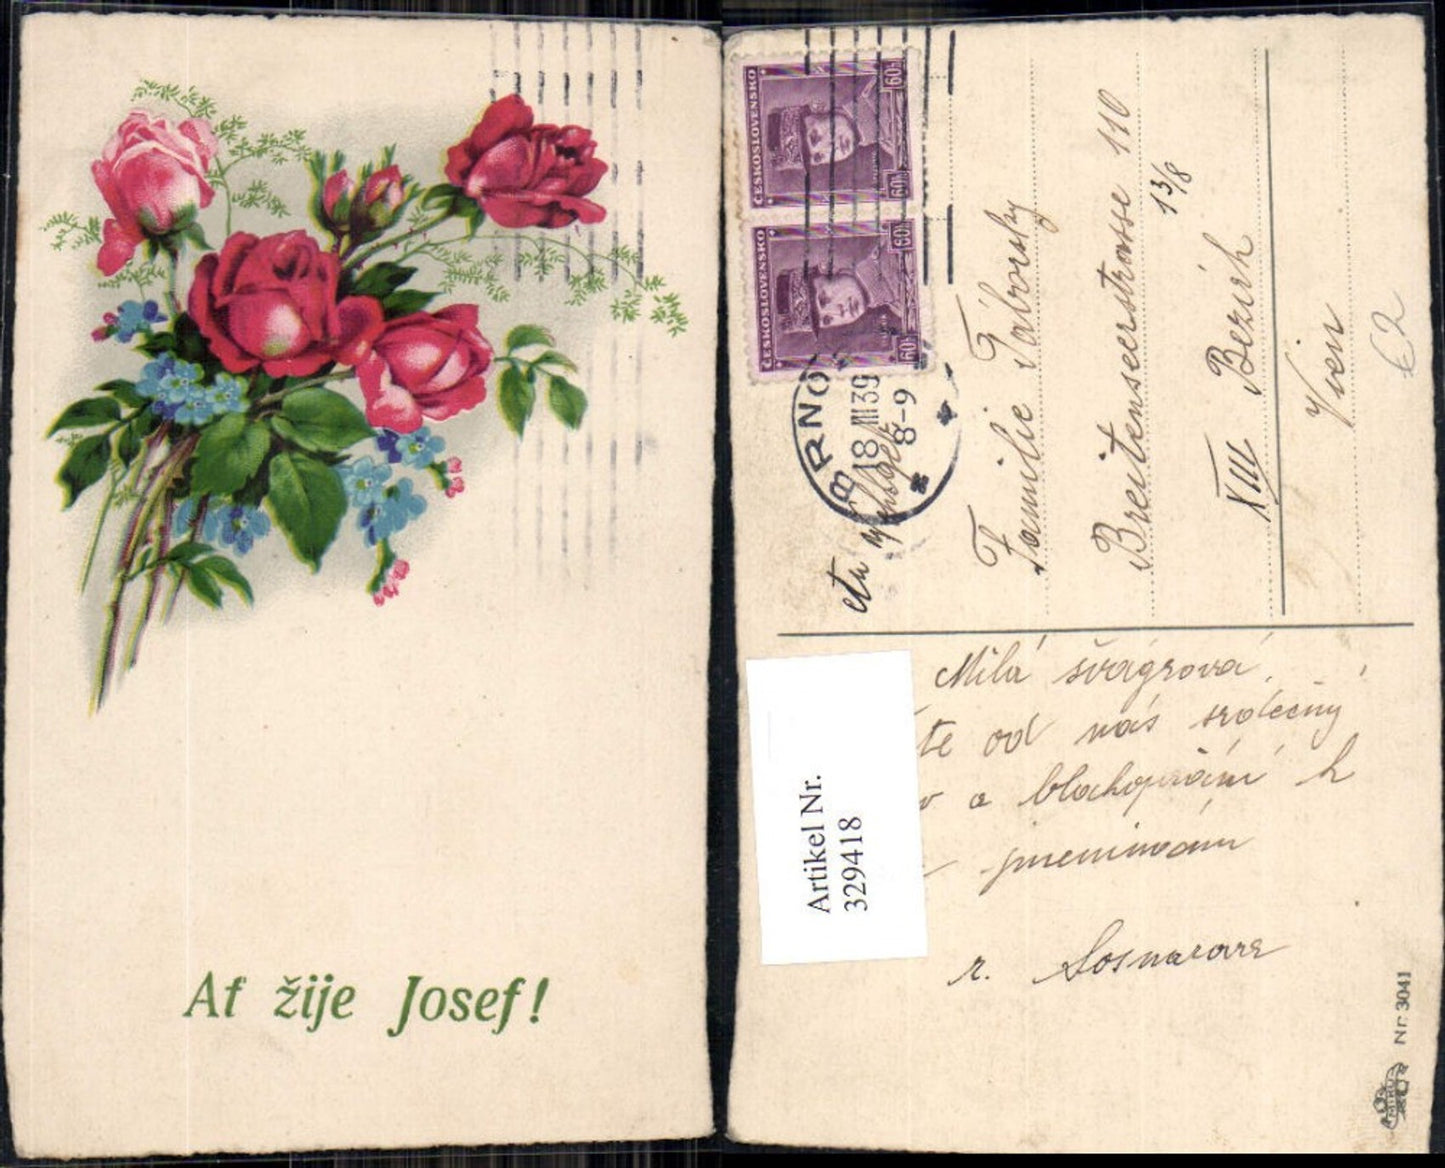 Ať žije Josef!
ČESKOSLOVENSKO
60h
60h
ČESKOSLOVENSKO
60h
60h
BRNO
18 III 39
8-9
Familie Táborsky
Breitenseerstrasse 110
13/8
XIII Bezirk
Wien
€2
Milá švagrová,
te od nás srdečný
a blahopřání k
jmeninám
r. Sosnarova
Artikel Nr.
329418
Nr. 3041
MIKU